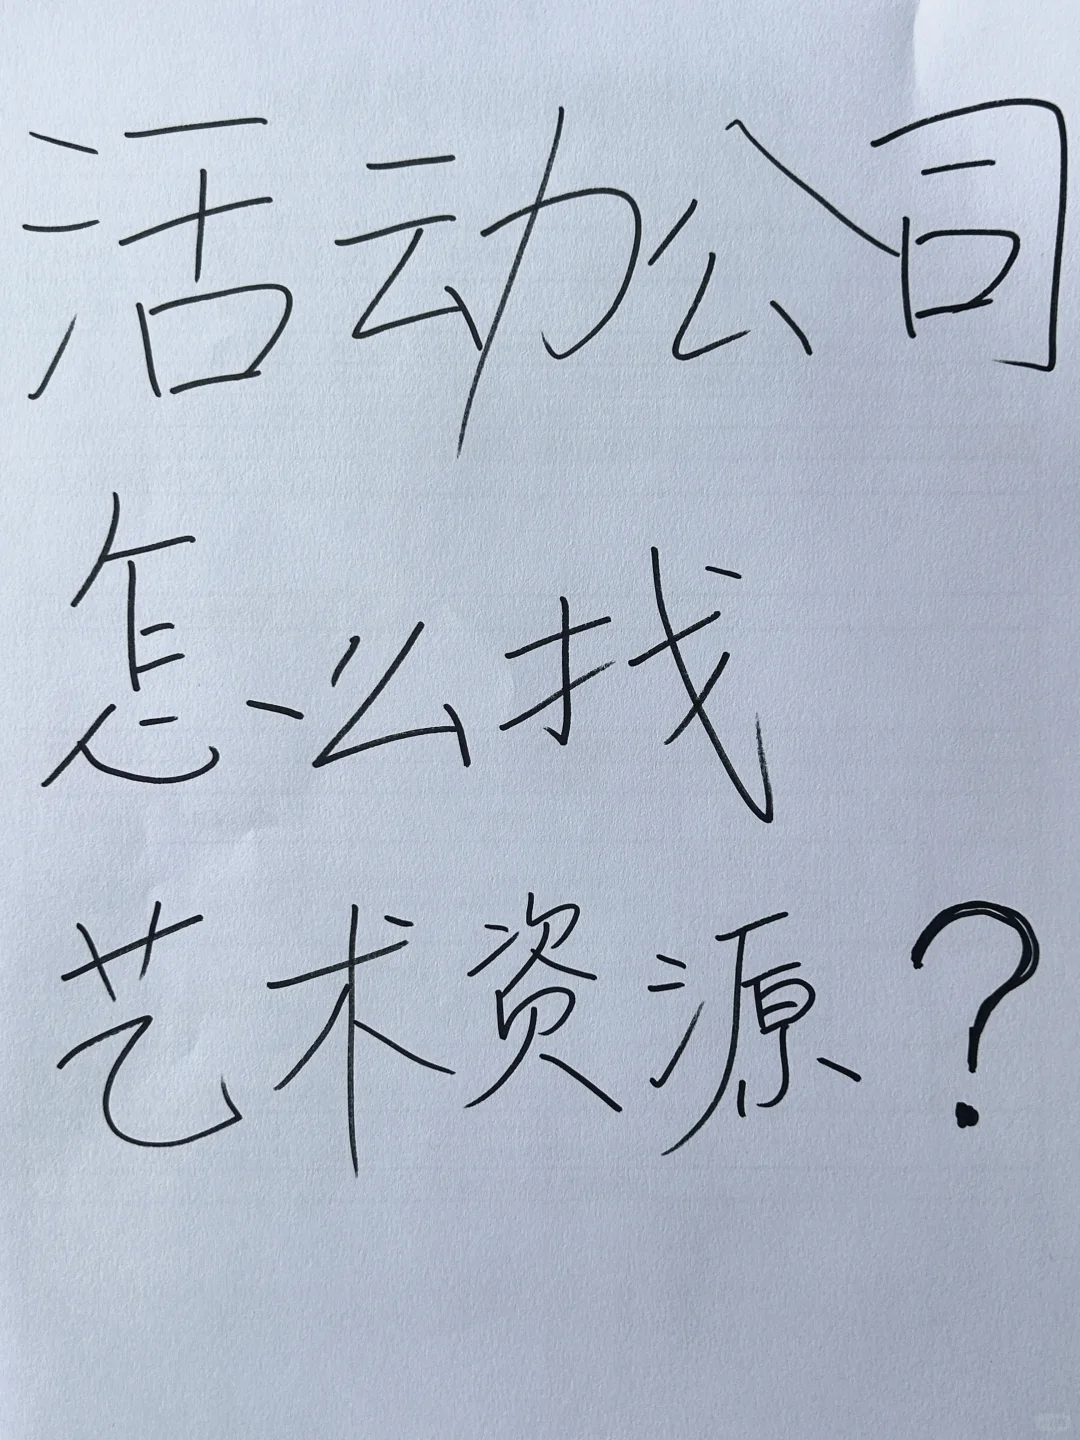 活动公司
怎么找
艺术资源？